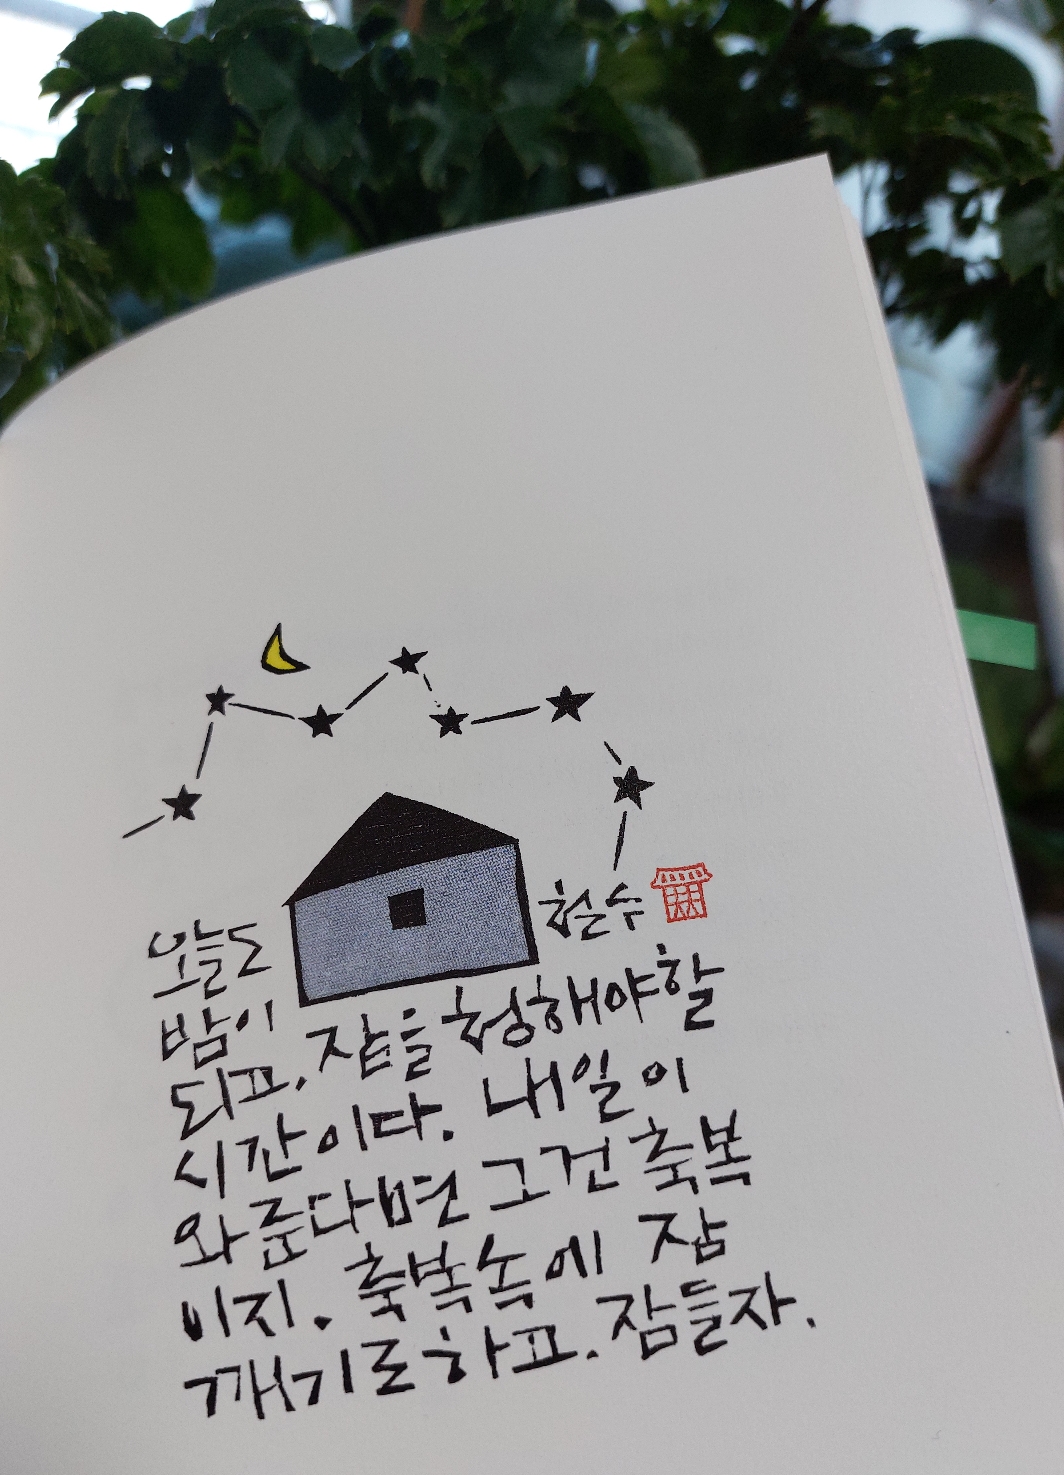 오늘도
철수
밤이
되고. 잠을 청해야할
시간이다. 내일이
와준다면 그건 축복
이지. 축복속에 잠
깨기로하고. 잠들자.